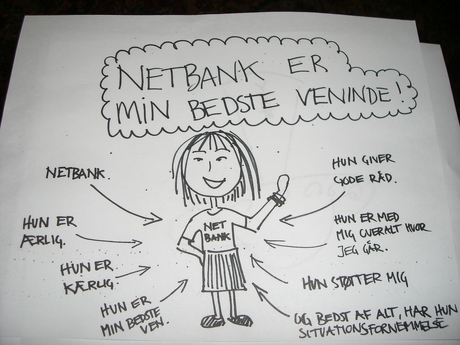 NETBANK ER
MIN BEDSTE VENINDE!
NETBANK.
HUN ER
ÆRLIG.
HUN ER
KÆRLIG.
HUN ER
MIN BEDSTE
VEN.
NET
BANK
HUN GIVER
GODE RÅD.
HUN ER MED
MIG OVERALT HVOR
JEG GÅR.
HUN STØTTER MIG
OG BEDST AF ALT, HAR HUN
SITUATIONSFORNEMMELSE